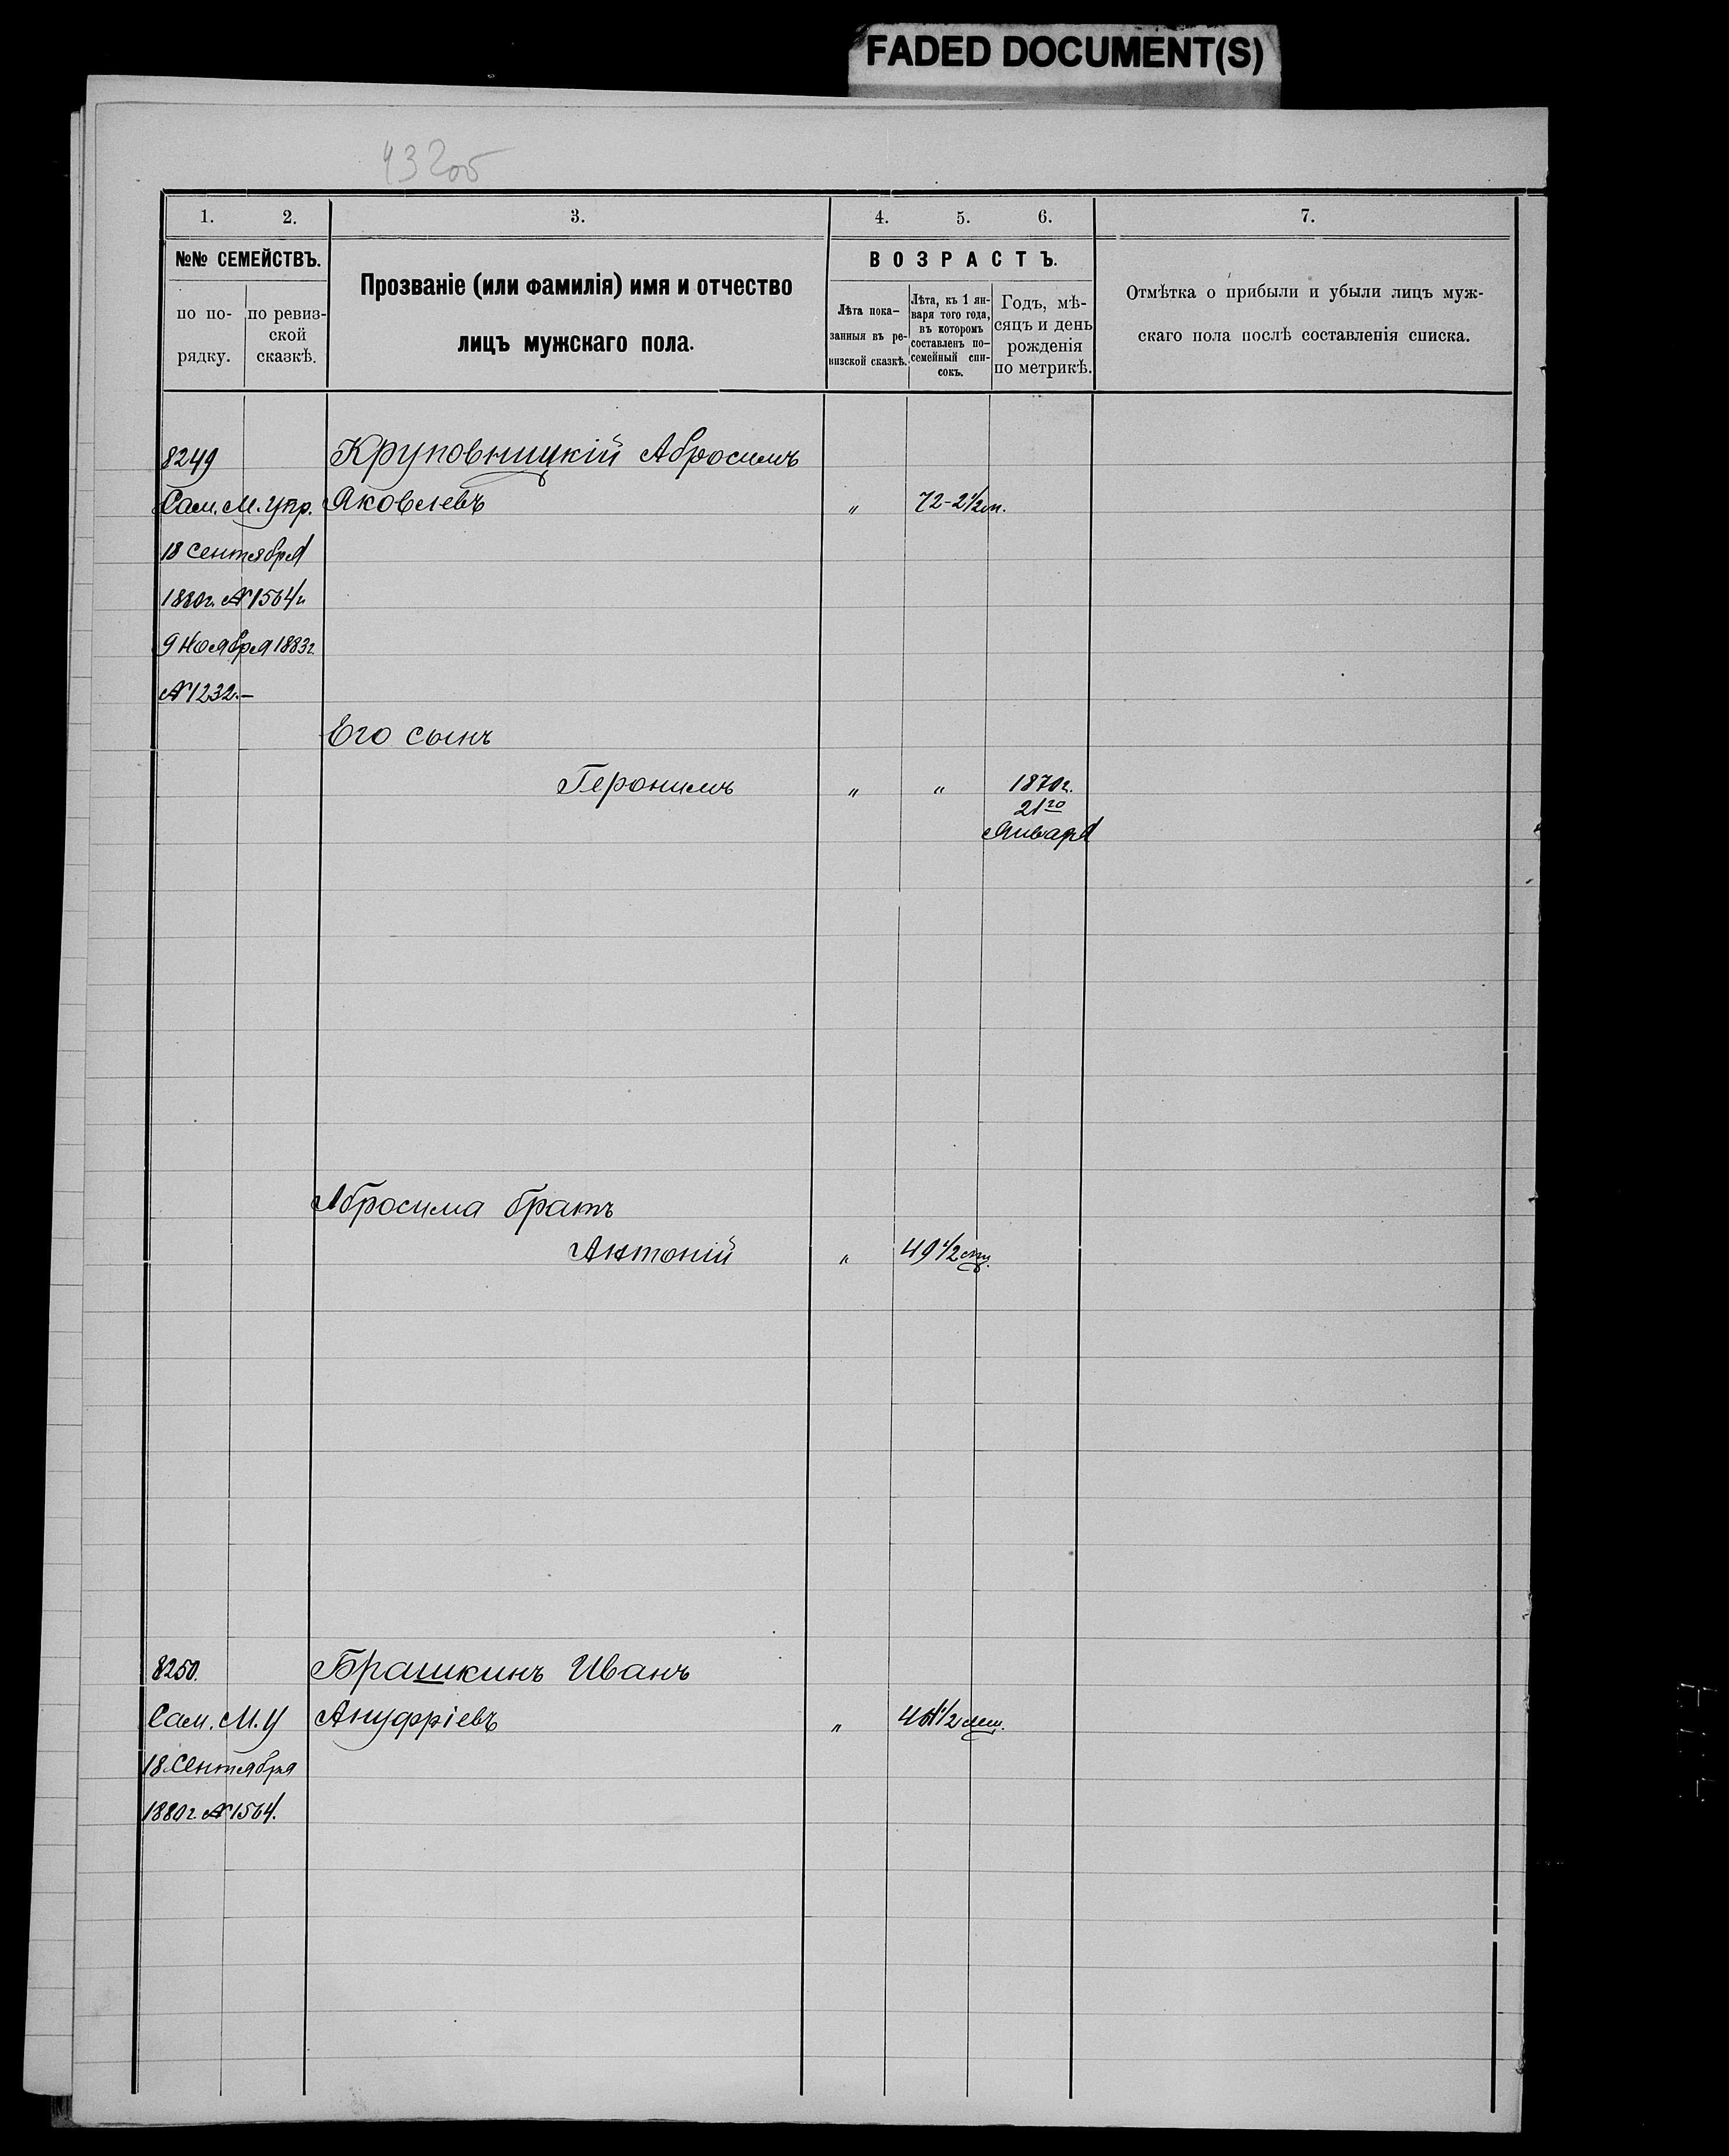 FADED DOCUMENT(S)
432об
1. 2. 3. 4. 5. 6. 7.
№№ СЕМЕЙСТВЪ.
по по-
рядку.
по ревиз-
ской
сказкѣ.
Прозваніе (или фамилія) имя и отчество
лицъ мужскаго пола.
ВОЗРАСТЪ.
Лѣта пока-
занныя въ ре-
визской сказкѣ.
Лѣта, къ 1 ян-
варя того года,
въ которомъ
составленъ по-
семейный спи-
сокъ.
Годъ, мѣ-
сяцъ и день
рожденія
по метрикѣ.
Отмѣтка о прибыли и убыли лицъ муж-
скаго пола послѣ составленія списка.
8249 Круповницкій Абросимъ
Сам. М. Упр. Яковлевъ " 72-2½м.
18 Сентября
1880г. №1564/и
9 Ноября 1883г.
№1232.-
Его сынъ
Геронимъ " " 1870г.
21го
Января
Абросима братъ
Антоній " 49½
8250. Брашкинъ Иванъ
Сам. М. У Ануфріевъ "
18 Сентября
1880г. №1564.